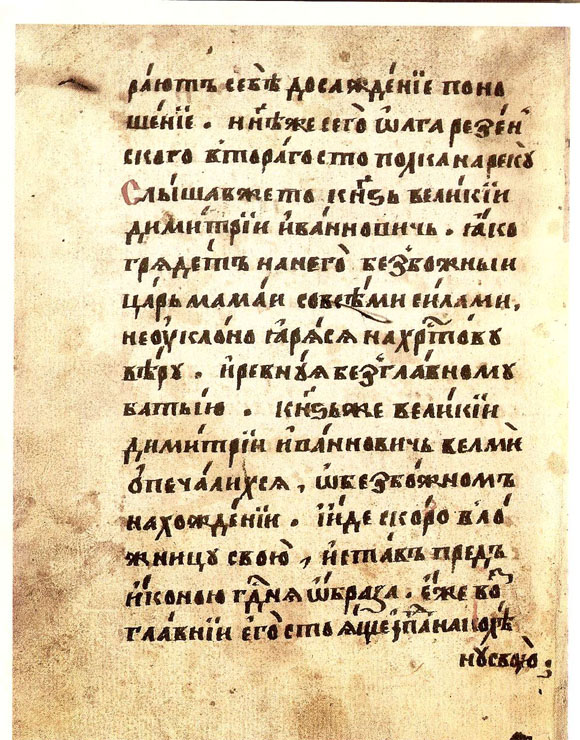 раютъ себѣ досажденїе поно
шенїе. и нн҃ѣ же сего ѡлга резен
ского второго стополка нарекꙋ
Слышав же то кн҃ѕь великїи
димитрїи иванновичь. ꙗко
грядетъ на него безбожныи
царь мамаи со всѣми силами,
неоуклоно ꙗряся на хрⷭ҇тову
вѣру. и ревнуя безглавному
батыю. кн҃ѕь же великїи
димитрїи иванновичь велми
опечалихся, ѡ безбожномъ
нахожденїи. и иде скоро в ло
жницу свою, и ставъ предъ
иконою гдⷭ҇ня ѡбраза. еже во
главнїи его стоящее, и пад на
ну свою.